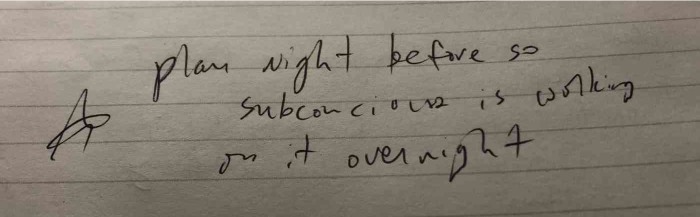 plan night before so
subconcious is working
on it overnight